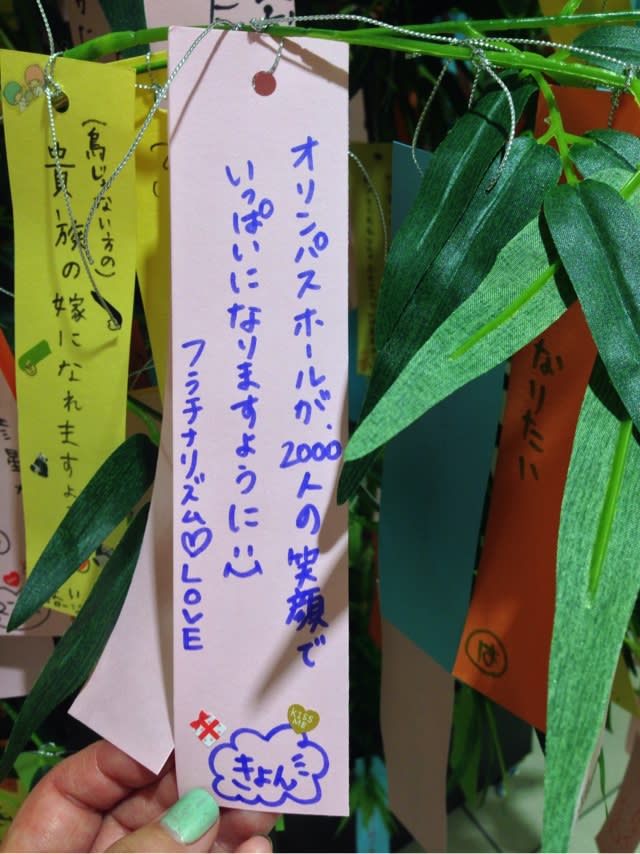 オリンパスホールが、2000人の笑顔で
いっぱいになりますように
フラチナリズム♡LOVE
KISS ME
きょん
(鳥じゃない方の)
貴族の嫁になれますよ
なりたい